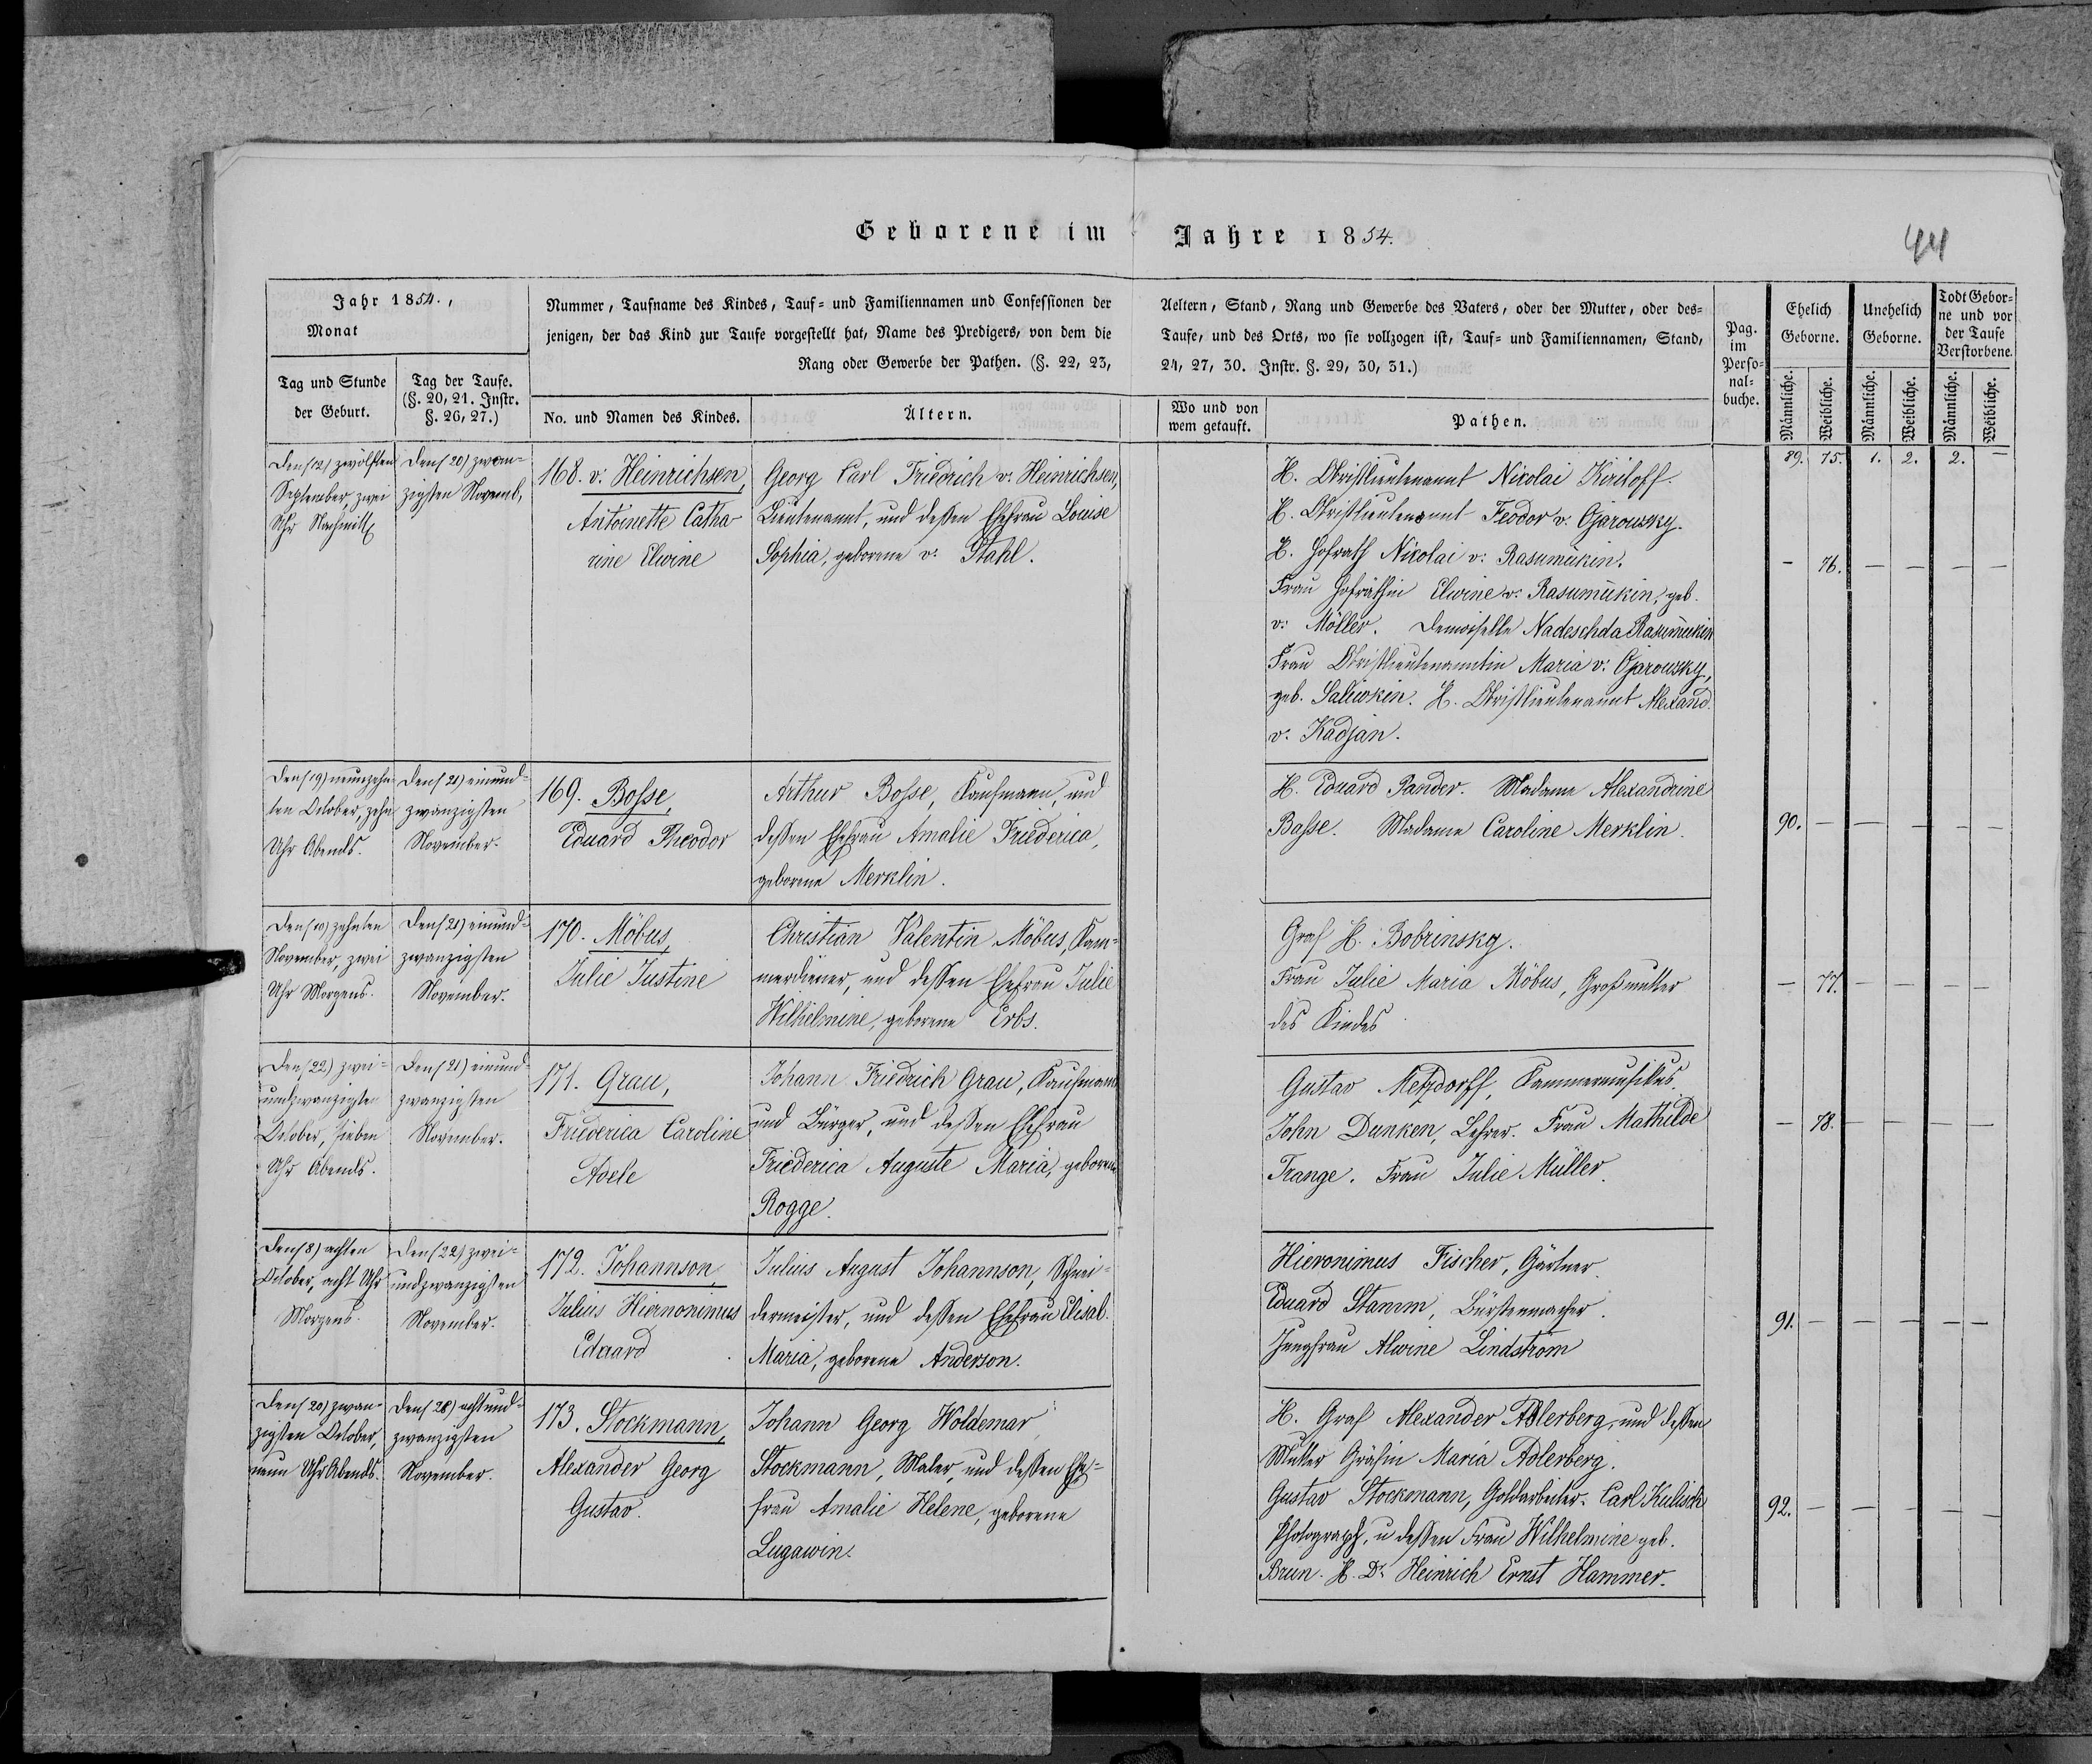 Geborene im Jahre 1854.
44
Jahr 1854.,
Monat
Tag und Stunde
der Geburt.
Tag der Taufe.
(§. 20, 21. Instr.
§. 26, 27.)
Nummer, Taufname des Kindes, Tauf- und Familiennamen und Confessionen der
jenigen, der das Kind zur Taufe vorgestellt hat, Name des Predigers, von dem die
Rang oder Gewerbe der Pathen. (§. 22, 23,
No. und Namen des Kindes.
Ältern.
Aeltern, Stand, Rang und Gewerbe des Vaters, oder der Mutter, oder des-
Taufe, und des Orts, wo sie vollzogen ist, Tauf- und Familiennamen, Stand,
24, 27, 30. Instr. §. 29, 30, 31.)
Wo und von
wem getauft.
Pathen.
Pag.
im
Perso-
nal-
buche.
Ehelich
Geborne.
Unehelich
Geborne.
Todt Gebor-
ne und vor
der Taufe
Verstorbene.
Männliche.
Weibliche.
Männliche.
Weibliche.
Männliche.
Weibliche.
89. 75. 1. 2. 2. —
Den (12) zwölften
September, zwei
Uhr Nachmitt
Den (20) zwan-
zigsten Novemb.
168. v: Heinrichsen,
Antoinette Catha
rine Elwine
Georg Carl Friedrich v: Heinrichsen,
Lieutenannt, und deßen Ehefrau Louise
Sophia, geborene v: Stahl.
H. Obristlieutenannt Nikolai Kiriloff.
H. Obristlieutenannt Feodor v: Ojarowsky.
H. Hofrath Nikolai v: Rasumükin.
Frau Hofräthin Elwine v: Rasumükin, geb.
v: Möller. Demoiselle Nadeschda Rasumükin
Frau Obristlieutenanntin Maria v: Ojarowsky,
geb. Saliwkin. H. Obristlieutenannt Alexand.
v: Kadjan.
— 76. — — — —
Den (19) neunzehn-
ten October, zehn
Uhr Abends.
Den (21) einund-
zwanzigsten
November.
169. Bosse,
Eduard Theodor
Arthur Bosse, Kaufmann, und
deßen Ehefrau Amalie Friederica,
geborene Merklin.
H. Eduard Pander. Madame Alexandrine
Basse. Madame Caroline Merklin.
90. — — — — —
Den (10) zehnten
November, zwei
Uhr Morgens.
Den (21) einund-
zwanzigsten
November.
170. Möbus,
Julie Justine
Christian Valentin Möbus, Kam-
merdiener, und deßen Ehefrau Julie
Wilhelmine, geborene Erbs.
Graf H. Bobrinsky.
Frau Julie Maria Möbus, Großmutter
des Kindes
— 77. — — — —
Den (22) zwei-
undzwanzigsten
October, sieben
Uhr Abends.
Den (21) einund-
zwanzigsten
November.
171. Grau,
Friederica Caroline
Adele
Johann Friedrich Grau, Kaufmann
und Bürger, und deßen Ehefrau
Friederica Auguste Maria, geborene
Rogge.
Gustav Metzdorff, Kammermusikus.
John Dunken, Lehrer. Frau Mathilde
Trange. Frau Julie Müller.
— 78. — — — —
Den (8) achten
October, acht Uhr
Morgens.
Den (22) zwei-
undzwanzigsten
November.
172. Johannson,
Julius Hiernonimus
Eduard
Julius August Johannson, Schnei-
dermeister, und deßen Ehefrau Elisab.
Maria, geborene Anderson.
Hieronimus Fischer, Gärtner.
Eduard Stamm, Bürstenmacher.
Jungfrau Alwine Lindström
91. — — — — —
Den (20) zwan-
zigsten October,
neun Uhr Abends.
Den (28) achtund-
zwanzigsten
November.
173. Stockmann,
Alexander Georg
Gustav.
Johann Georg Woldemar
Stockmann, Maler, und deßen Ehe-
frau Amalie Helene, geborene
Lugawin.
H. Graf Alexander Adlerberg, und deßen
Mutter Gräfin Maria Adlerberg.
Gustav Stockmann, Goldarbeiter. Carl Kulisch
Photograph, u deßen Frau Wilhelmine geb.
Brun. H. Dr. Heinrich Ernst Hammer.
92. — — — — —